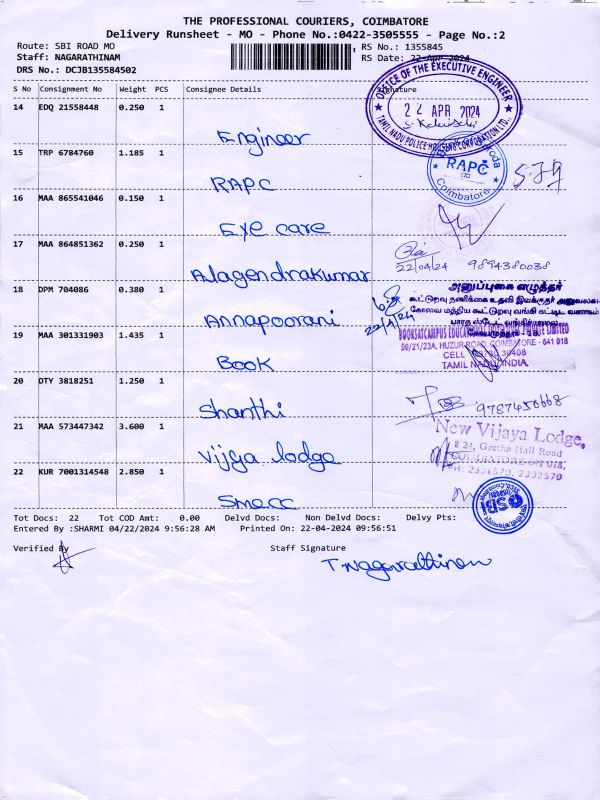 THE PROFESSIONAL COURIERS, COIMBATORE
Delivery Runsheet - MO - Phone No.:0422-3505555 - Page No.:2
Route: SBI ROAD MO
RS No.: 1355845
Staff: NAGARATHINAM
RS Date: 22-Apr-2024
DRS No.: DCJB135584502
S No Consignment No Weight PCS Consignee Details Signature
OFFICE OF THE EXECUTIVE ENGINEER
22 APR 2024
TAMIL NADU POLICE HOUSING CORPORATION LTD.
14 EDQ 21558448 0.250 1
Engineer
15 TRP 6784760 1.185 1
RAPC
RAPC
Coimbatore
16 MAA 865541046 0.150 1
Eye care
17 MAA 864851362 0.250 1
Alagendrakumar
22/04/24 9894380038
18 DPM 704086 0.380 1
Annapoorani
22/4/24
அனுப்புகை எழுத்தர்
கூட்டுறவு தணிக்கை உதவி இயக்குநர் அலுவலகம்
கோவை மத்திய கூட்டுறவு வங்கி கட்டிட வளாகம்
19 MAA 301331903 1.435 1
Book
60/21/23A, HUZUR ROAD, COIMBATORE - 641 018
TAMIL NADU, INDIA
20 DTY 3818251 1.250 1
Shanthi
9787450668
21 MAA 573447342 3.600 1
Vijya lodge
New Vijaya Lodge,
8/24, Geetha Hall Road
COIMBATORE-641 018,
PH: 2301570, 2302570
22 KUR 7001314548 2.850 1
Smecc
SBI
Tot Docs: 22 Tot COD Amt: 0.00 Delvd Docs: Non Delvd Docs: Delvy Pts:
Entered By :SHARMI 04/22/2024 9:56:28 AM Printed On: 22-04-2024 09:56:51
Verified By
Staff Signature
T.Nagarathinam